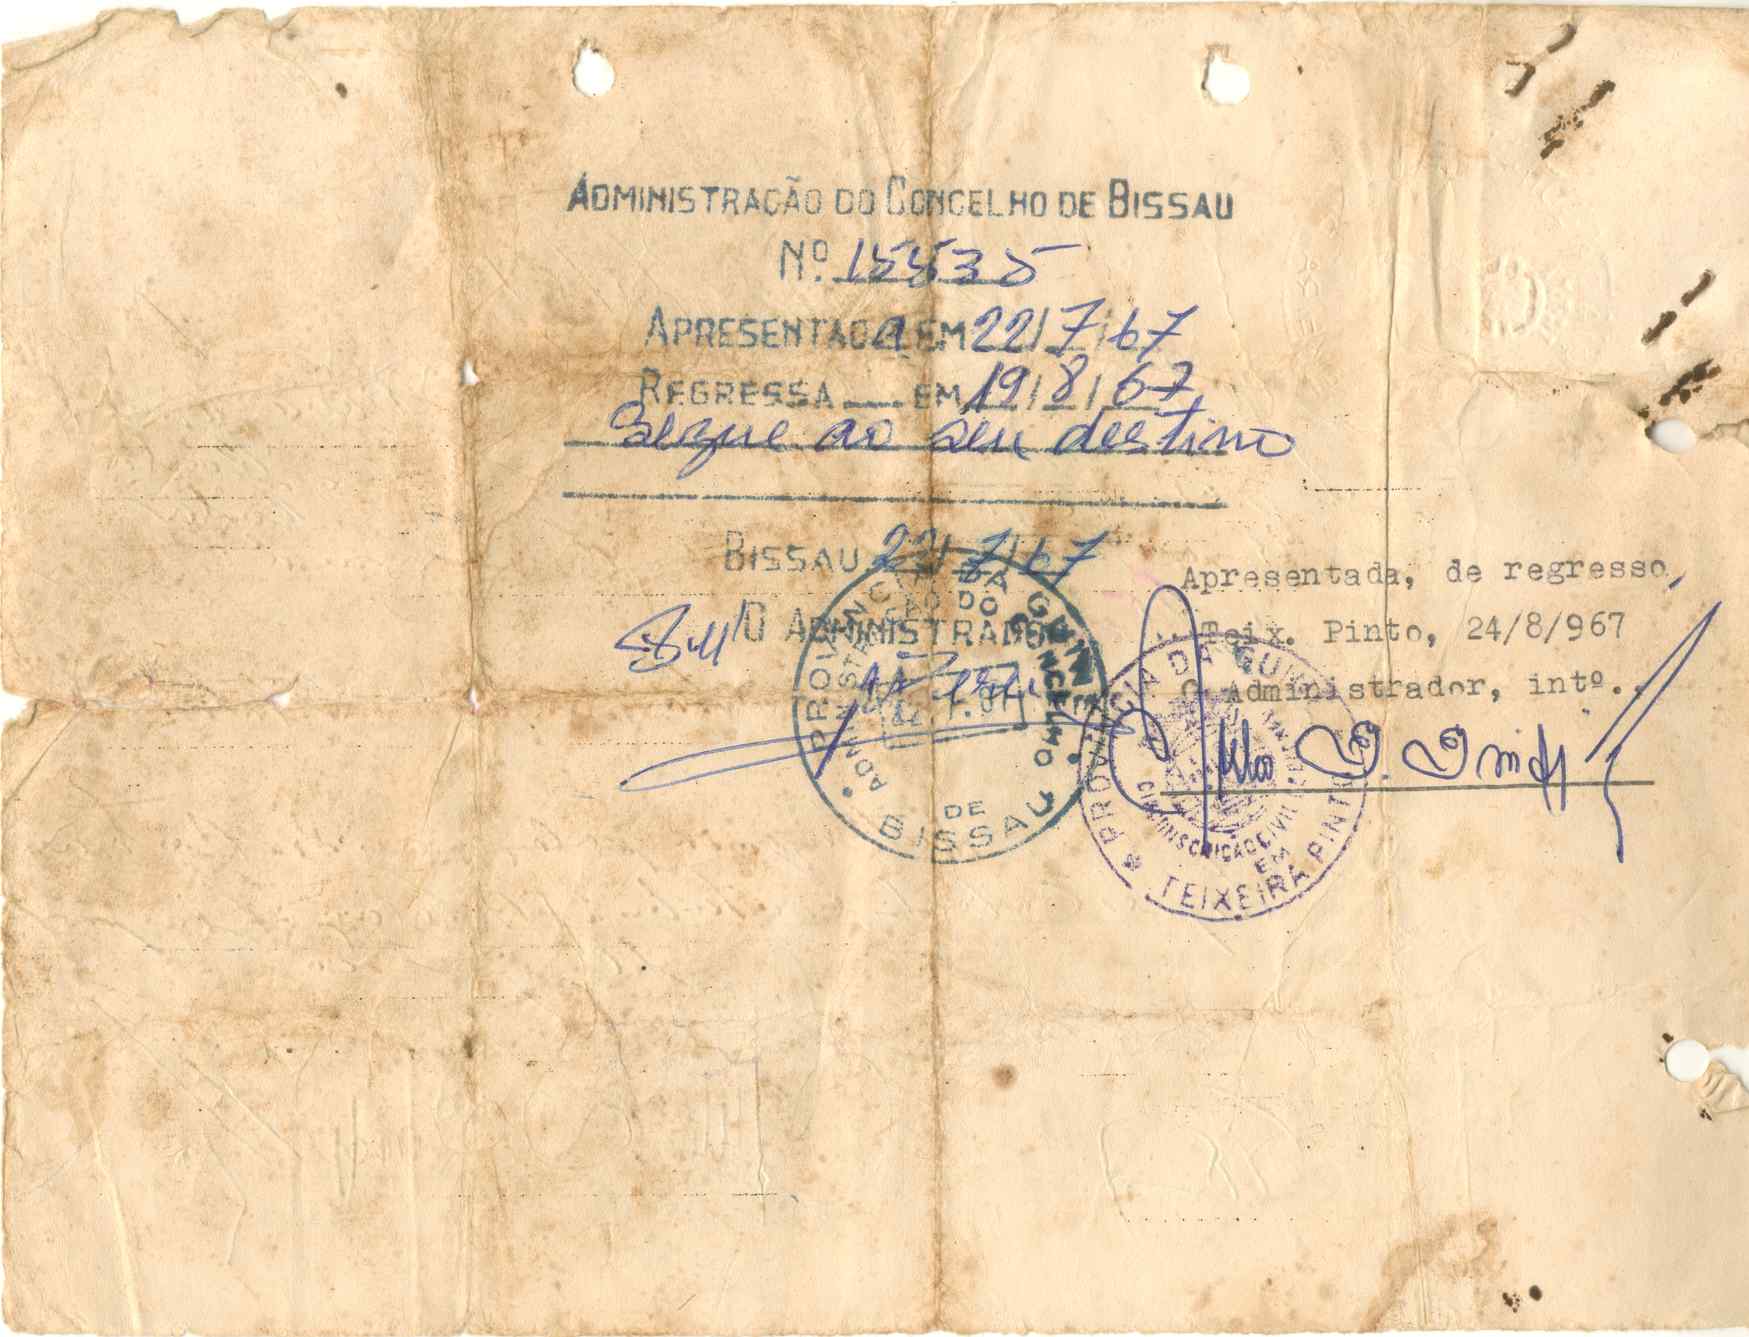 ADMINISTRAÇÃO DO CONCELHO DE BISSAU
Nº. 15535
APRESENTADA EM 22/7/67
REGRESSA EM 19/8/67
Segue ao seu destino
BISSAU 22/7/67
O ADMINISTRADOR
PROVÍNCIA DA GUINÉ
ADMINISTRAÇÃO DO CONCELHO
DE
BISSAU
Apresentada, de regresso,
Teix. Pinto, 24/8/967
O Administrador, intº.
PROVÍNCIA DA GUINÉ
CIRCUNSCRIÇÃO CIVIL
EM
TEIXEIRA PINTO